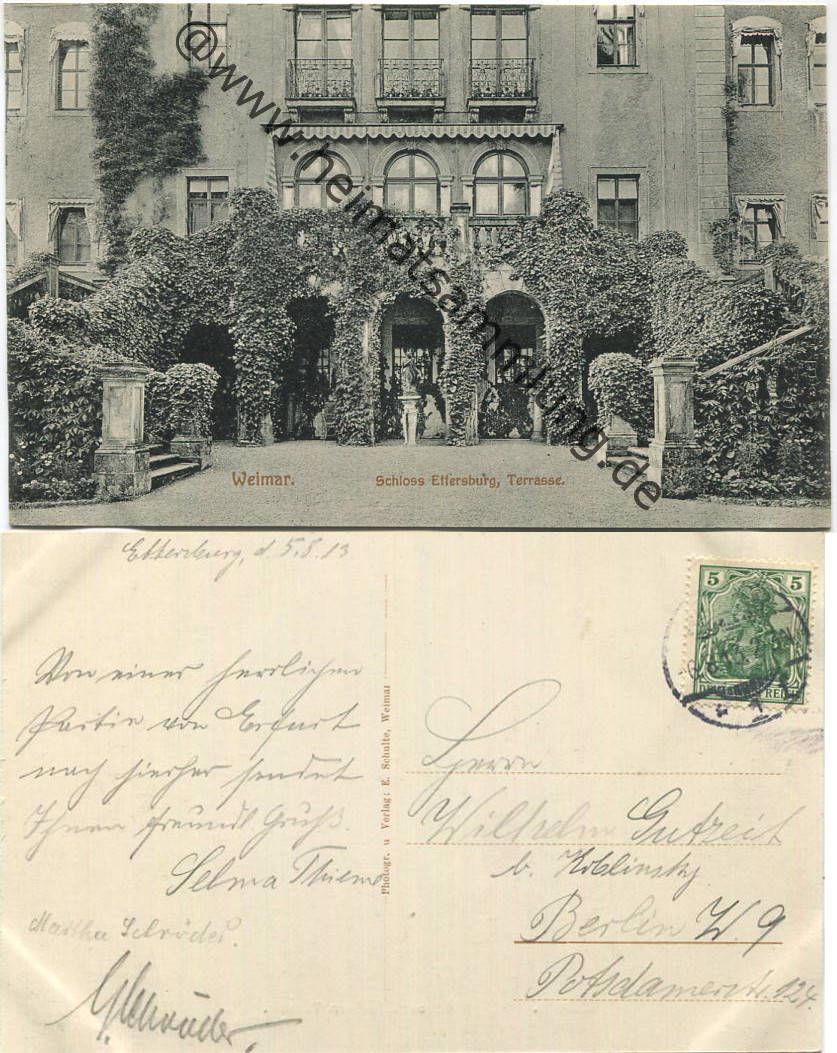 @www.heimatsammlung.de
Weimar.
Schloss Ettersburg, Terrasse.
Ettersburg, d. 5.8.13
Von einer herrlichen
Partie von Erfurt
nach hierher sendet
Ihnen freundl. Gruß.
Selma Thieme
Martha Schröder.
Schröder.
Photogr. u Verlag: E. Schulte, Weimar
5 5
DEUTSCHES REICH
Herrn
Wilhelm Gutzeit
b. Koblinsky
Berlin W. 9
Potsdamerstr. 124.